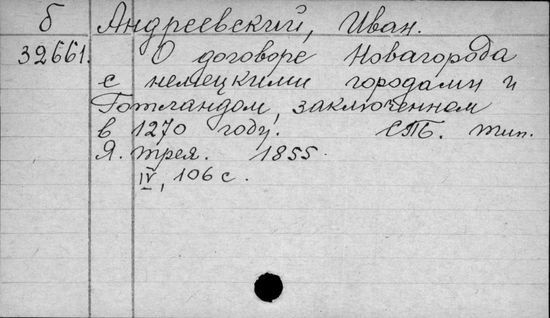 б Андреевский, Иван.
32661. О договоре Новагорода
с немецкими городами и
Готландом, заключенном
в 1270 году. СПБ. тип.
Я. Трея. 1855.
IV, 106 с.